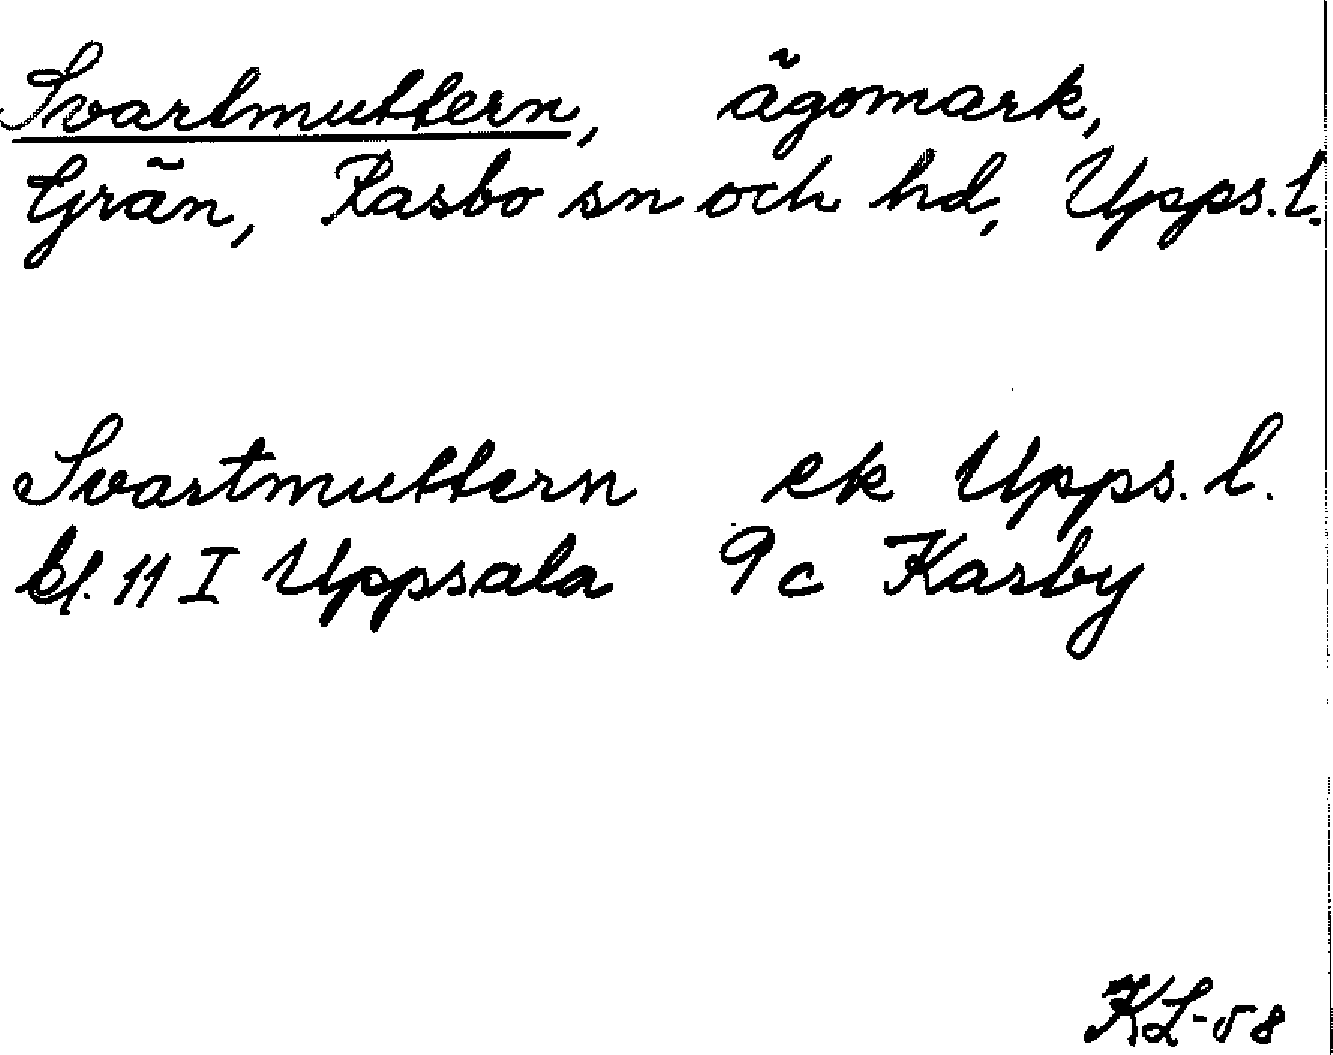 Svartmuttern, ägomark,
Grän, Rasbo sn och hd, Upps. l.
Svartmuttern ek Upps. l.
bl. 11 I Uppsala 9c Karby
KL-58